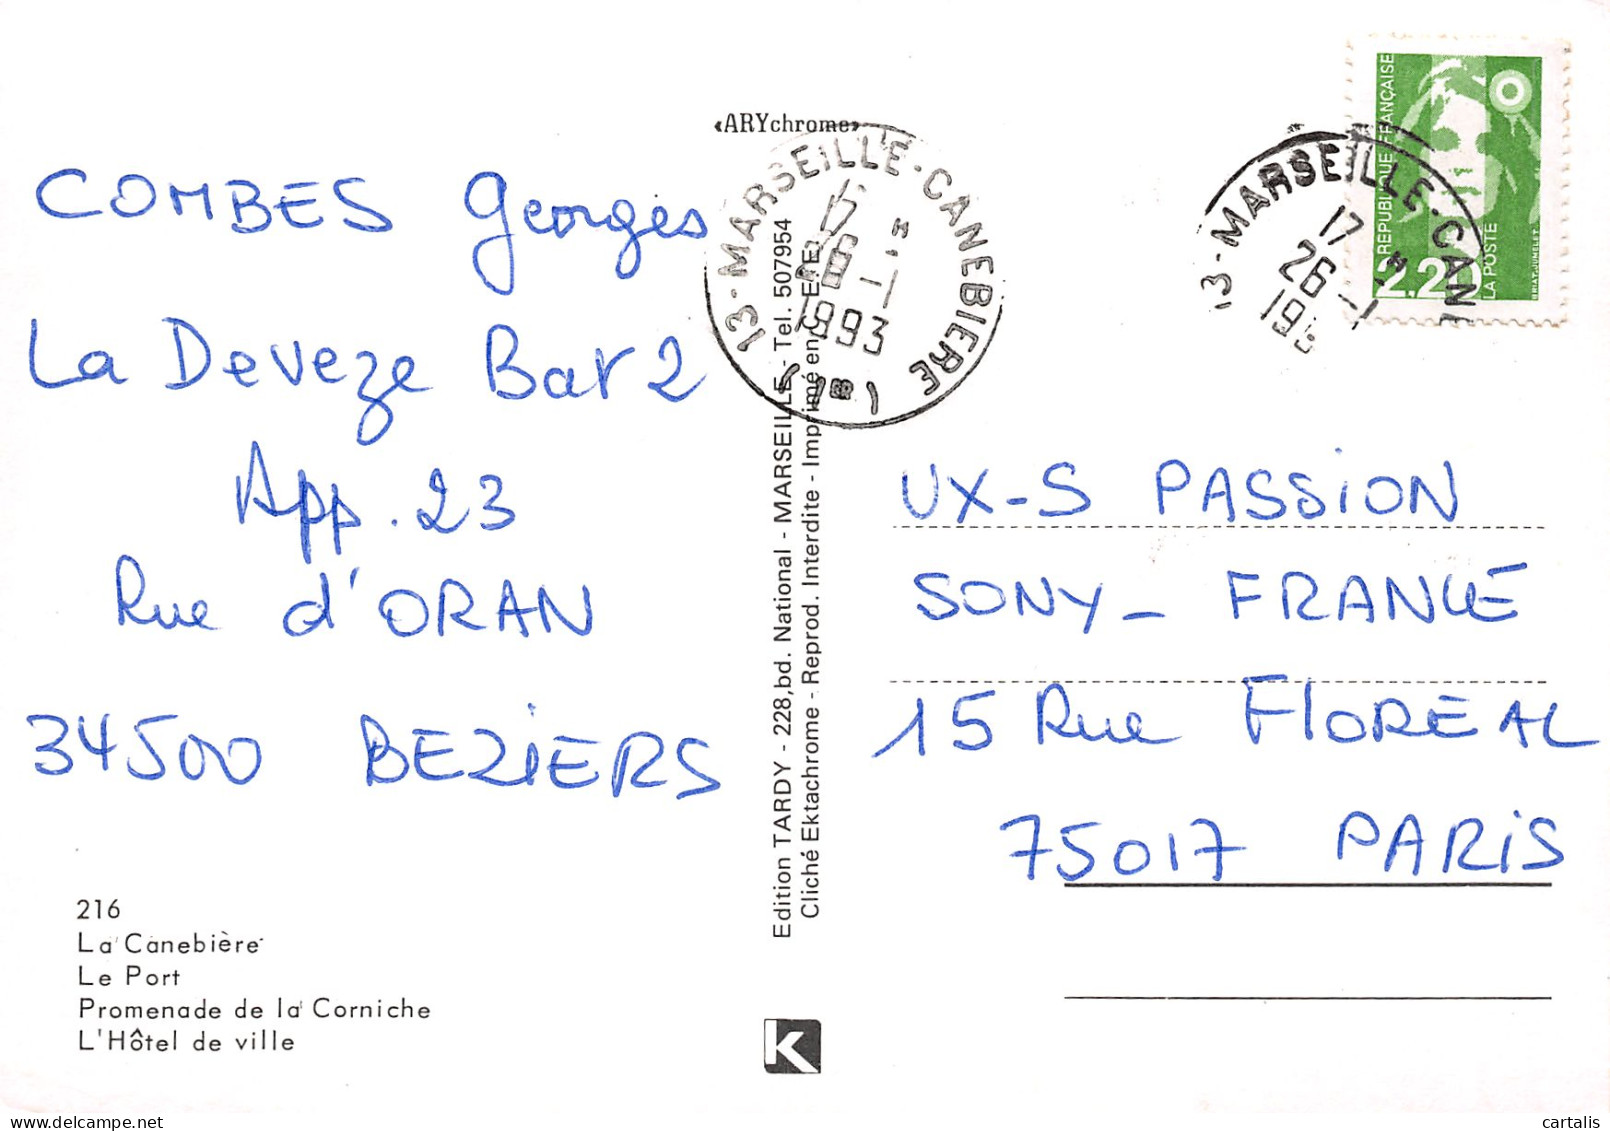 «ARYchrome»
COMBES Georges
La Deveze Bat 2
App. 23
Rue d'ORAN
34500 BEZIERS
216
La Canebière
Le Port
Promenade de la Corniche
L'Hôtel de ville
Edition TARDY - 228, bd. National - MARSEILLE - Tel. 507954
Cliché Ektachrome - Reprod. Interdite - Imprimé en
K
13-MARSEILLE-CANEBIERE
17
26-1
1993
13-MARSEILLE-CANE
17
26-1
199
REPUBLIQUE FRANÇAISE
2,20
LA POSTE
BRIAT-JUMELET
UX-S PASSION
SONY - FRANCE
15 Rue FLOREAL
75017 PARIS
cartalis
www.delcampe.net